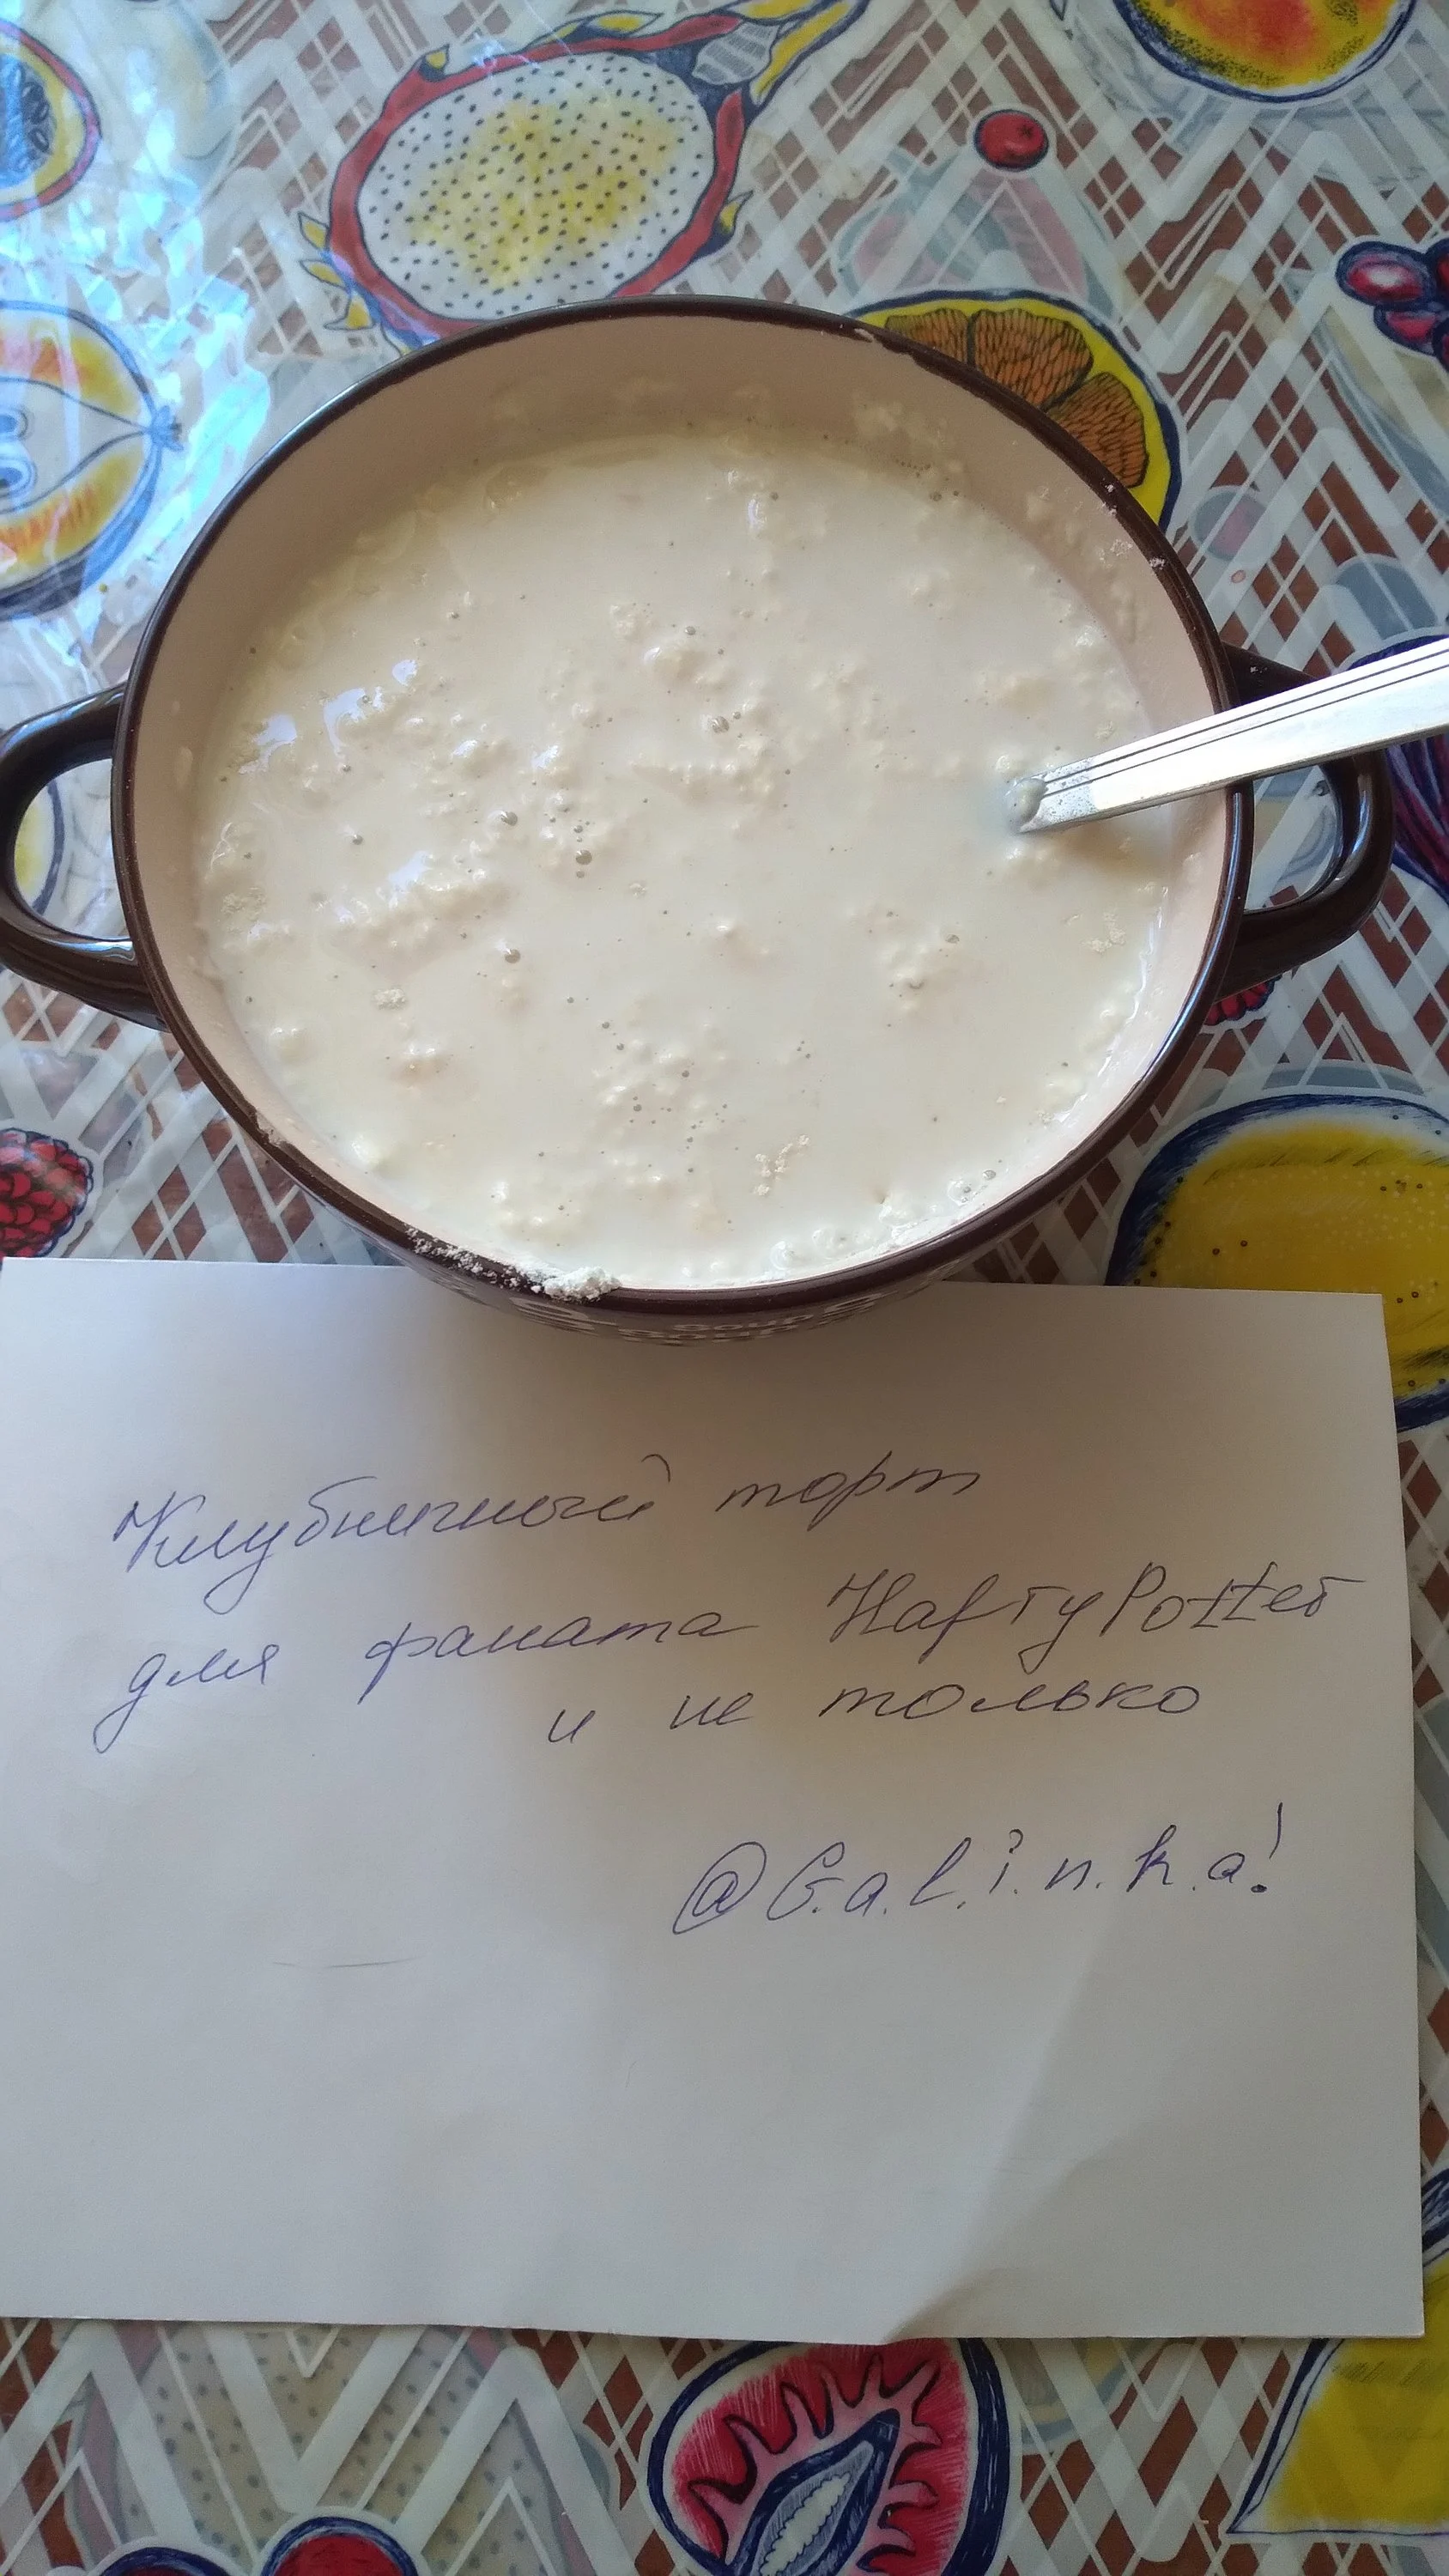 Клубничный торт
для фаната HarryPotter
и не только
@G.a.l.i.n.k.a!